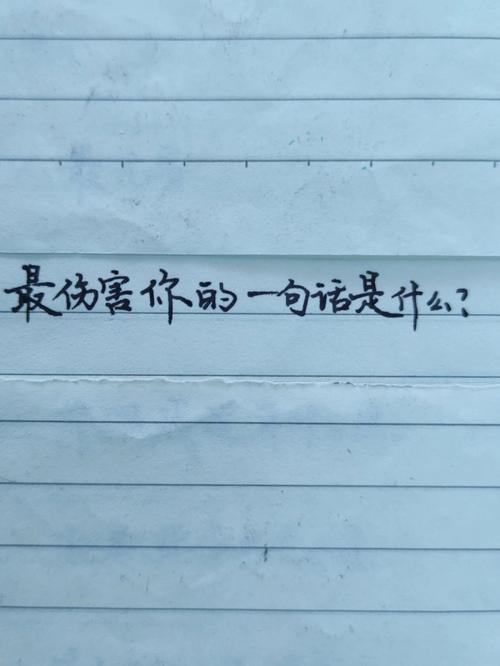 最伤害你的一句话是什么?